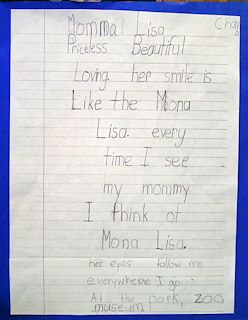 Momma Lisa
Priceless Beautiful
Loving. her smile is
Like the Mona
Lisa. every
time I see
my mommy
I think of
Mona Lisa.
her eyes follow me
everywhere I go.
At the park, zoo
museum